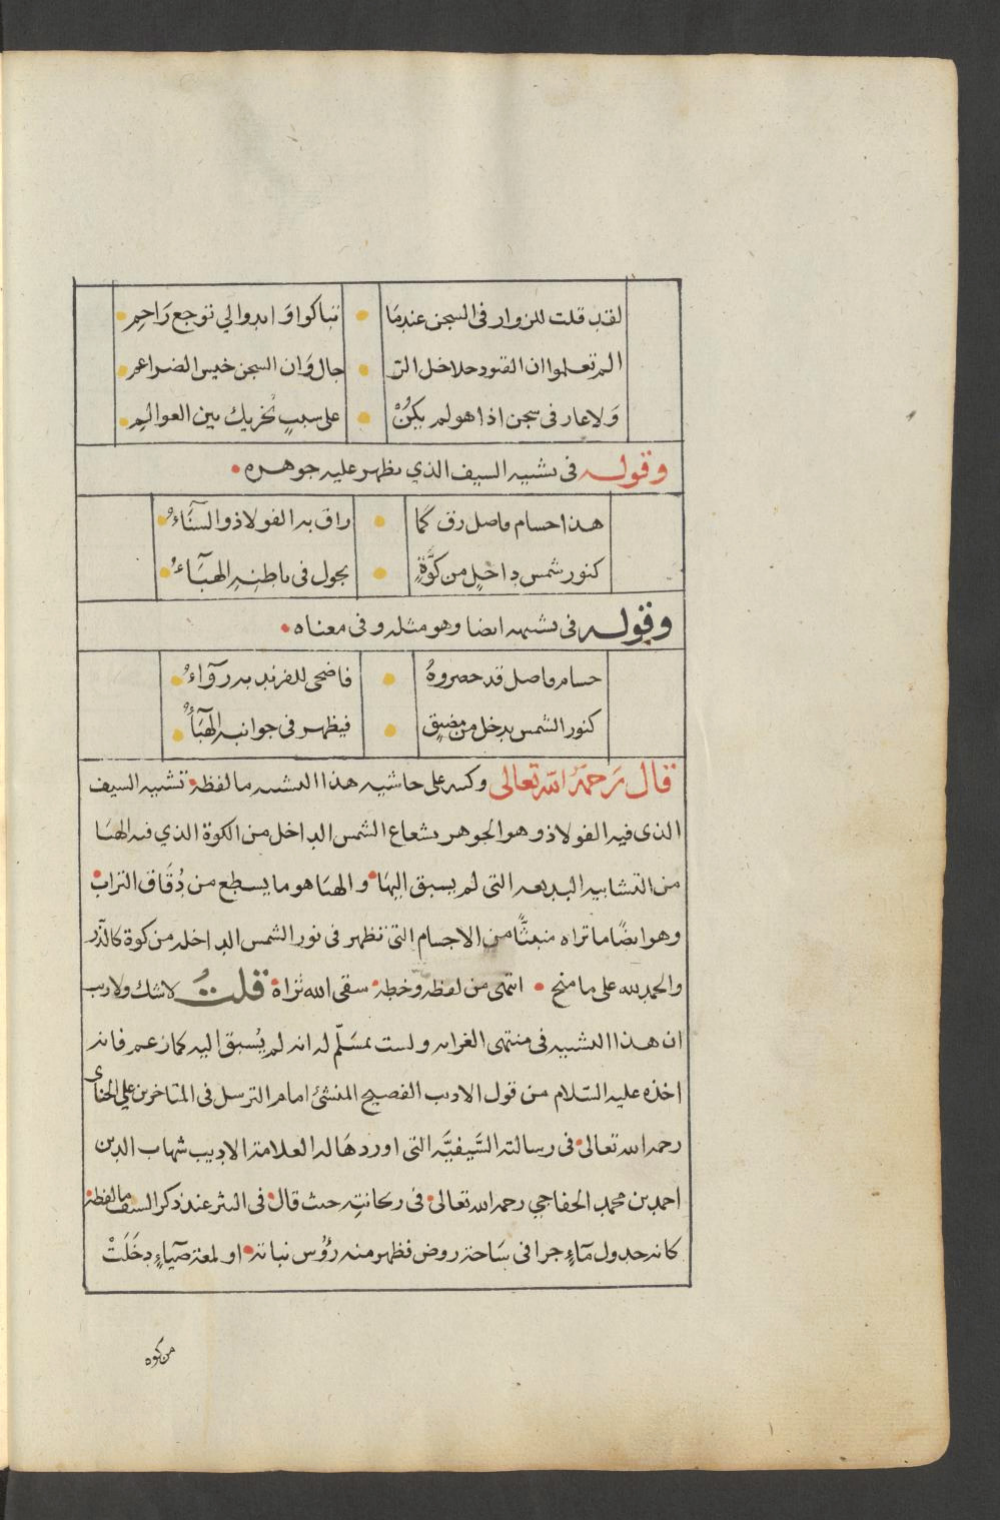 لقد قلت للزوار في السجن عندما • تباكوا وابدوا لي توجع راحم •
الم تعلموا ان القيود حلاخل الر • جال وان السجن خيس الضراغم •
ولا عار في سجن اذا هو لم يكن • على سبب يخزيك بين العوالم •
وقوله في تشبيه السيف الذي يظهر عليه جوهره •
هذا حسام فاصل رق كما • راق به الفولاذ والسناء •
كنور شمس داخل من كوة • يجول في باطنه الهباء •
وقوله في تشبيهه ايضا وهو مثله وفي معناه •
حسام فاصل قد • فاضحى للفرند به رواء •
كنور الشمس يدخل من مضيق • فيظهر في جوانبه الهباء •
قال رحمه الله تعالى وكتب على حاشيه هذا التشبيه ما لفظه • تشبيه السيف
الذي فيه الفولاذ وهو الجوهر بشعاع الشمس الداخل من الكوة الذي فيه الهبا
من التشابيه البديعه التي لم يسبق اليها • والهبا هو ما يسطع من دُقاق التراب •
وهو ايضًا ما تراه منبثًّا من الاجسام التي تظهر في نور الشمس الداخله من كوة كالذر
والحمد لله على ما منح • انتهى من لفظه وخطه • سقى الله ثراه • قلت لا شك ولا ريب
ان هذا التشبيه في منتهى الغرابه ولست بمسلّم له انه لم يُسبق اليه كما زعم فانه
اخذه عليه السّلام من قول الاديب الفصيح المنشئ امام الترسل في المتاخرين علي الحناى
رحمه الله تعالى • في رسالته السَّيفيَّه التي اوردها له العلامة الاديب شهاب الدين
احمد بن محمد الخفاجي رحمه الله تعالى • في ريحانته حيث قال • في النثر عند ذكر السيف ما لفظه •
كانه جدول ماءٍ جرا في ساحة روض فظهر منه رؤس نباته • او لمعة ضياءٍ دخَلَتْ
من كوه